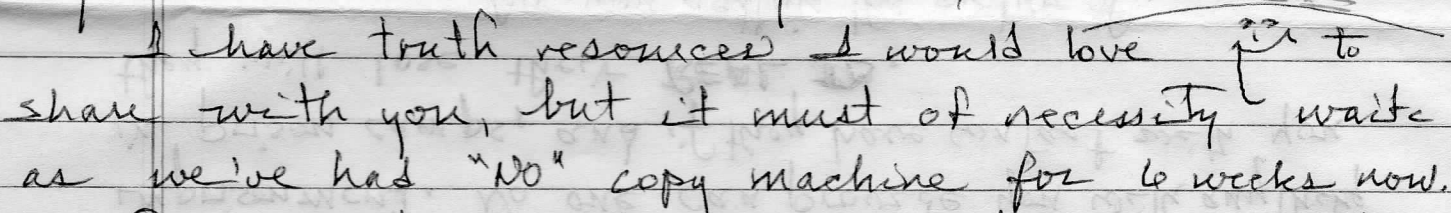 I have truth resources I would love to
share with you, but it must of necessity waite
as we've had "No" copy machine for 6 weeks now.